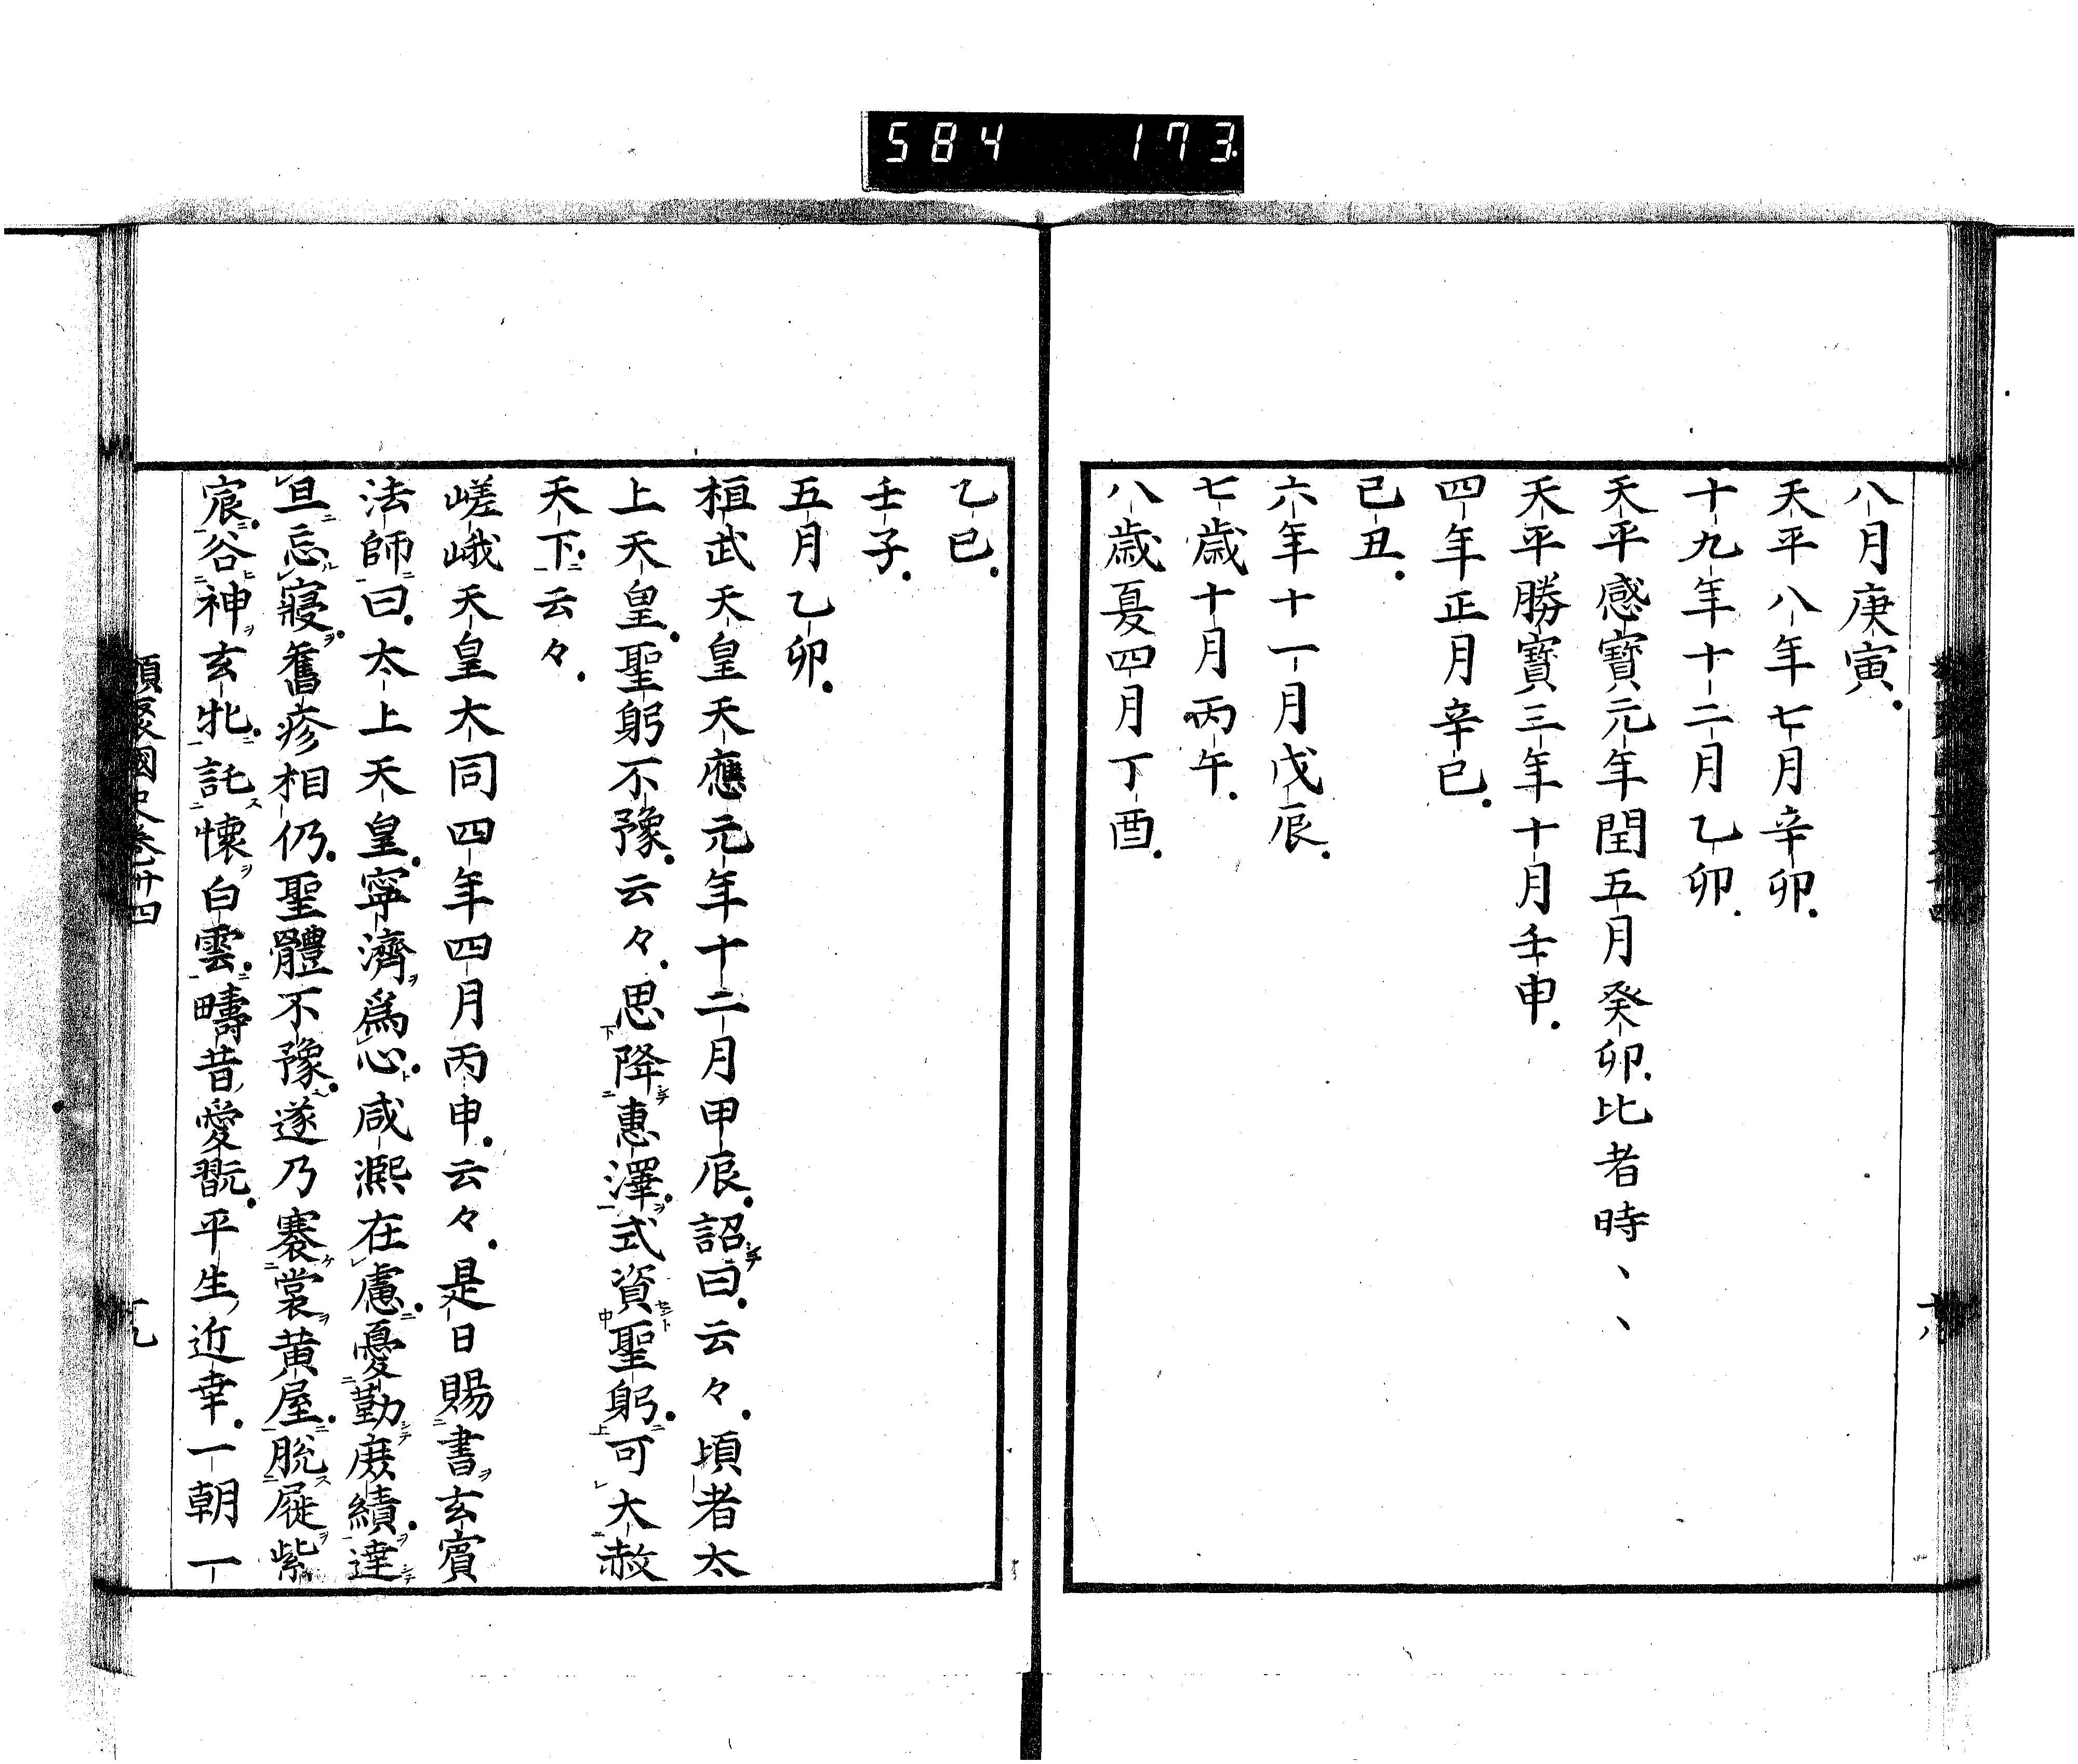 584 173.
八月庚寅.
天平八年七月辛卯.
十九年十二月乙卯.
天平感寶元年閏五月癸卯.比者時、、
天平勝寶三年十月壬申.
四年正月辛巳.
己丑.
六年十一月戊辰.
七歲十月丙午.
八歲夏四月丁酉.
乙巳.
壬子.
五月乙卯.
桓武天皇天應元年十二月甲辰.詔曰.云々.頃者太
上天皇.聖躬不豫.云々.思降惠澤.式資聖躬.可大赦
天下.云々.
嵯峨天皇大同四年四月丙申.云々.是日賜書玄賓
法師曰.太上天皇.寧濟爲心.咸凞在慮.憂勤庶績.達
旦忘寢.舊疹相仍.聖體不豫.遂乃褰裳黄屋.脫屣紫
宸.谷神玄牝.託懷白雲.疇昔愛翫.平生近幸.一朝一
類聚國史卷廿四